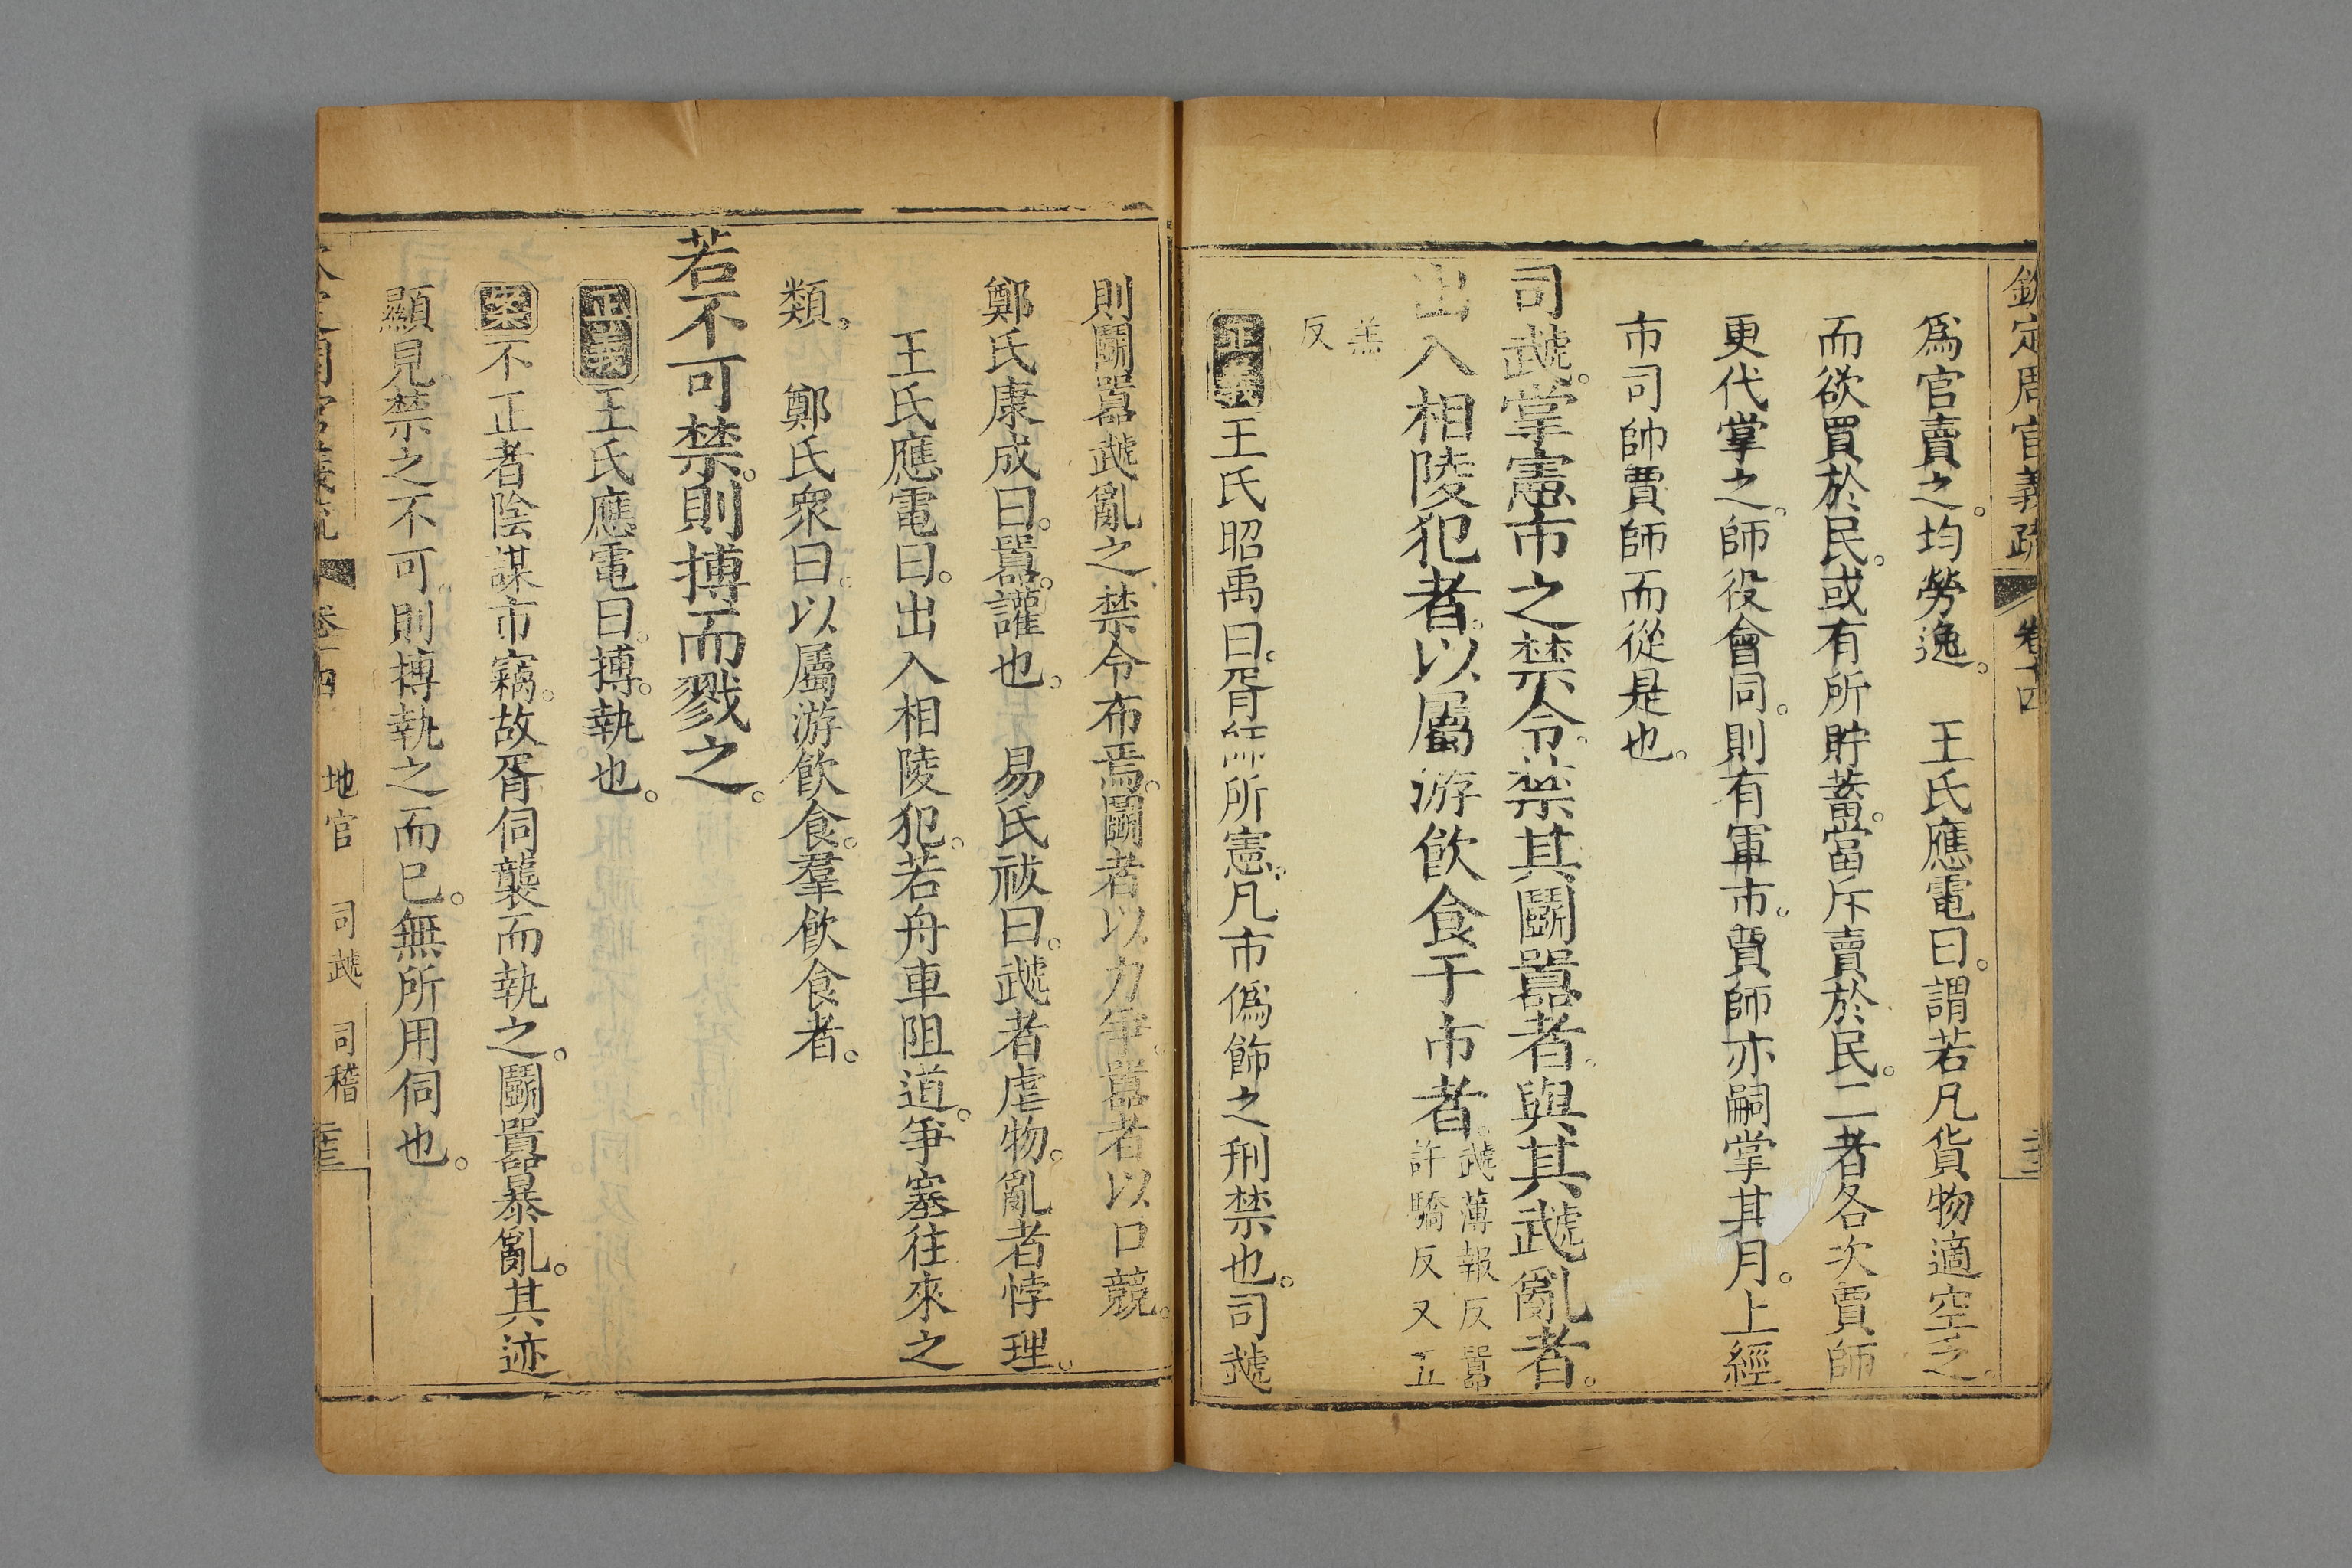 欽定周官義疏 卷十四
爲官賣之。均勞逸。 王氏應電曰。謂若凡貨物適空乏。
而欲買於民。或有所貯蓄。當斥賣於民。二者各次賈師
更代掌之。師役會同。則有軍市。賈師亦嗣掌其月。上經
市司帥賈師而從是也。
司虣。掌憲市之禁令。禁其鬭囂者。與其虣亂者。
出入相陵犯者。以屬游飲食于市者。虣薄報反囂
許驕反又五
羔
反
正義王氏昭禹曰。胥師所憲。凡市僞飾之刑禁也。司虣
則鬭囂虣亂之禁令布焉。鬭者以力爭。囂者以口競。
鄭氏康成曰。囂。讙也。 易氏祓曰。虣者虐物。亂者悖理。
王氏應電曰。出入相陵犯。若舟車阻道。爭塞往來之
類。 鄭氏衆曰。以屬游飲食。羣飲食者。
若不可禁。則搏而戮之。
正義王氏應電曰。搏。執也。
案不正者陰謀市竊。故胥伺襲而執之。鬭囂暴亂。其迹
顯見禁之不可。則搏執之而已。無所用伺也。
欽定周官義疏 卷十四 地官 司虣 司稽